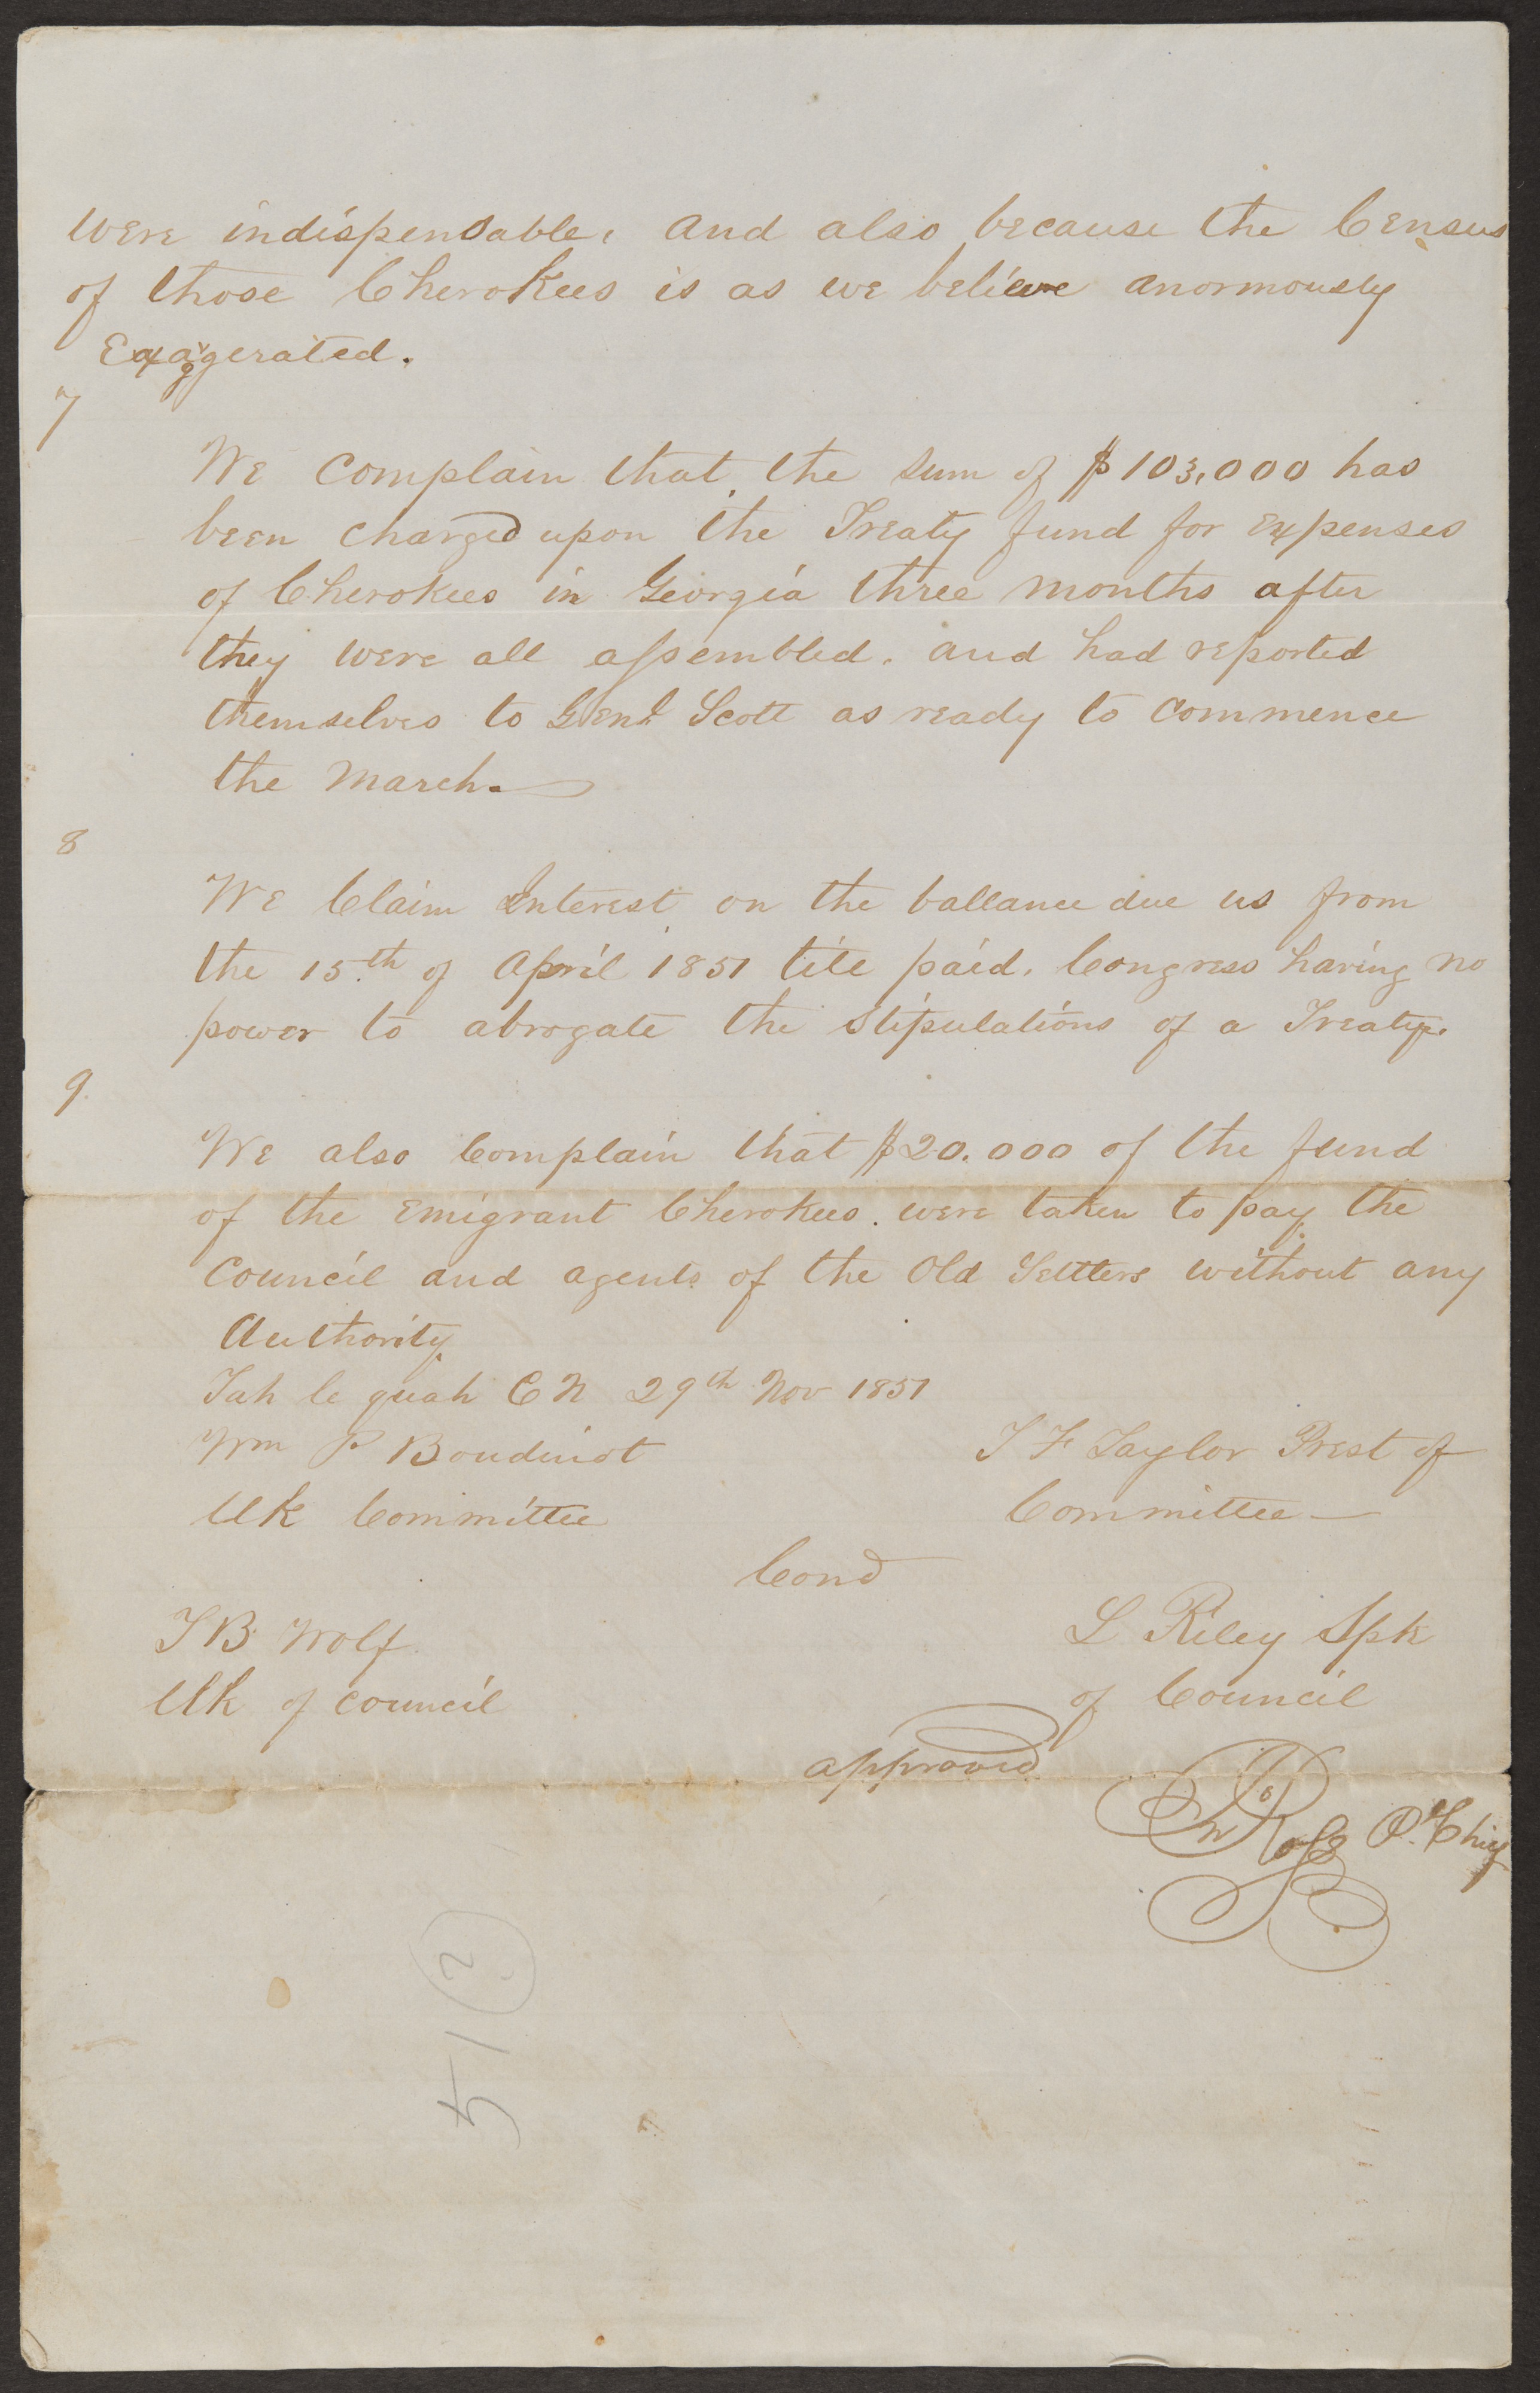 were indispensable, and also because the Census
of those Cherokees is as we believe anormously
Exaggerated.
7
We complain that the sum of $103,000 has
been charged upon the Treaty fund for expenses
of Cherokees in Georgia three months after
they were all assembled. and had reported
themselves to Genl Scott as ready to commence
the march.
8
We Claim Interest on the ballance due us from
the 15th of April 1851 till paid. Congress having no
power to abrogate the Stipulations of a Treaty.
9.
We also Complain that $20.000 of the fund
of the Emigrant Cherokees. were taken to pay the
Council and agents of the Old Settlers without any
Authority.
Tah le quah C N 29th Nov 1851
Wm P Boudinot
Clk Committee
T F Taylor Prest of
Committee —
Concd
T B Wolf
Clk of council
L Riley Spk
of Council
approved
Jno Ross P. Chief
51(?)